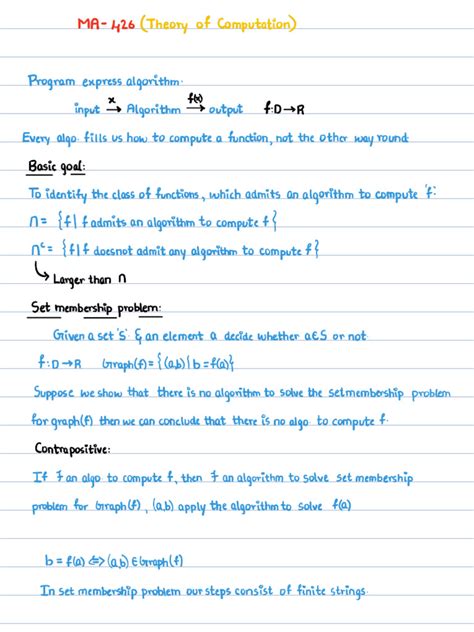 MA-426 (Theory of Computation)
Program express algorithm.
x f(x)
input → Algorithm → output f:D→R
Every algo. fills us how to compute a function, not the other way round
Basic goal:
To identify the class of functions, which admits an algorithm to compute 'f'.
n = {f | f admits an algorithm to compute f}
nᶜ = {f | f doesnot admit any algorithm to compute f}
↳ Larger than n
Set membership problem:
Given a set 'S' & an element a decide whether a∈S or not
f:D→R Graph(f) = {(a,b) | b = f(a)}
Suppose we show that there is no algorithm to solve the setmembership problem
for graph(f) then we can conclude that there is no algo to compute f.
Contrapositive:
If ∃ an algo to compute f, then ∃ an algorithm to solve set membership
problem for Graph(f), (a,b) apply the algorithm to solve f(a)
b = f(a) ⇔ (a,b) ∈ Graph(f)
In set membership problem our steps consist of finite strings.